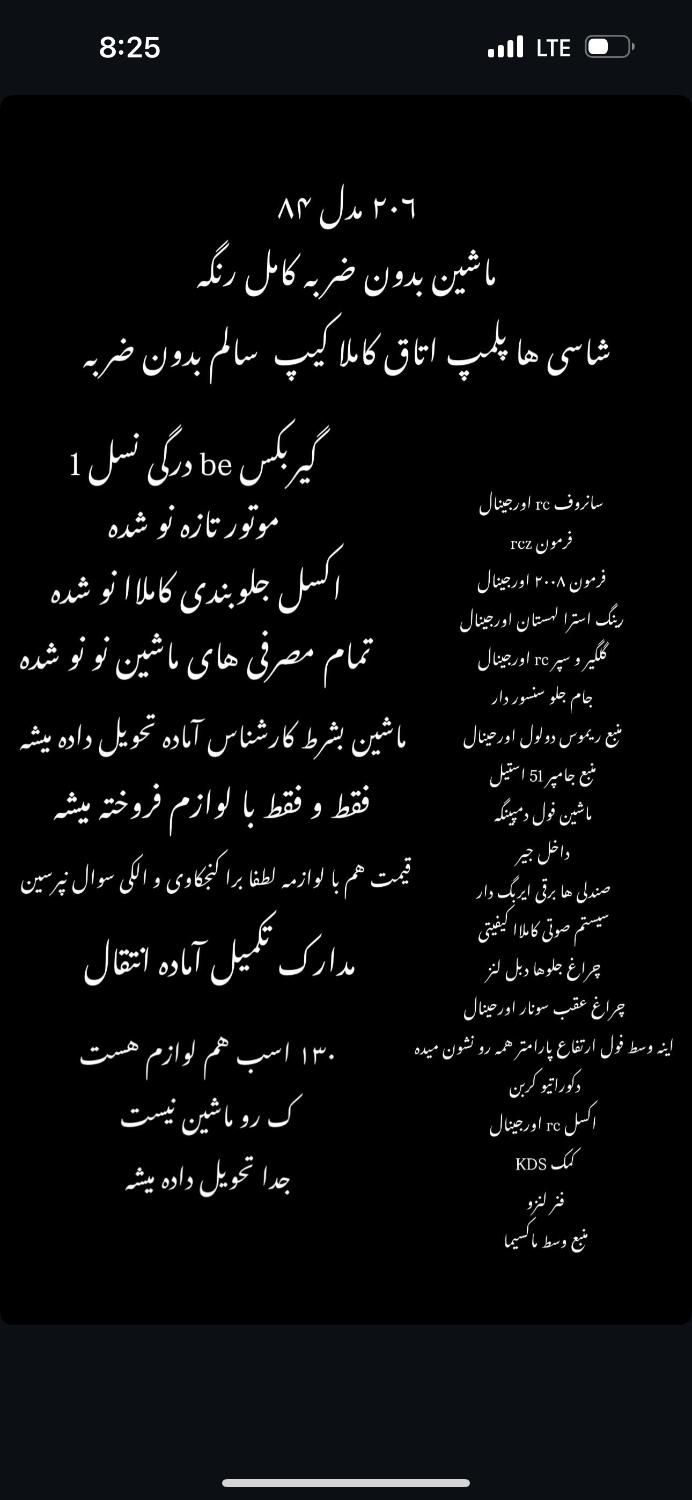 8:25
LTE
۲۰۶ مدل ۸۴
ماشین بدون ضربه کامل رنگه
شاسی ها پلمپ اتاق کاملا کیپ سالم بدون ضربه
سانروف rc اورجینال
فرمون rcz
فرمون ۲۰۰۸ اورجینال
رینگ استرا لهستان اورجینال
گلگیر و سپر rc اورجینال
جام جلو سنسور دار
منبع ریموس دولول اورحینال
منبع جامپر 51 استیل
ماشین فول دمپینگه
داخل جیر
صندلی ها برقی ایربگ دار
سیستم صوتی کاملاا کیفیتی
چراغ جلوها دبل لنز
چراغ عقب سونار اورحینال
اینه وسط فول ارتفاع پارامتر همه رو نشون میده
دکوراتیو کربن
اکسل rc اورجینال
کمک KDS
فنر لنزو
منبع وسط ماکسیما
گیربکس be درگی نسل 1
موتور تازه نو شده
اکسل جلوبندی کاملاا نو شده
تمام مصرفی های ماشین نو نو شده
ماشین بشرط کارشناس آماده تحویل داده میشه
فقط و فقط با لوازم فروخته میشه
قیمت هم با لوازمه لطفا برا کنجکاوی و الکی سوال نپرسین
مدارک تکمیل آماده انتقال
۱۳۰ اسب هم لوازم هست
ک رو ماشین نیست
جدا تحویل داده میشه